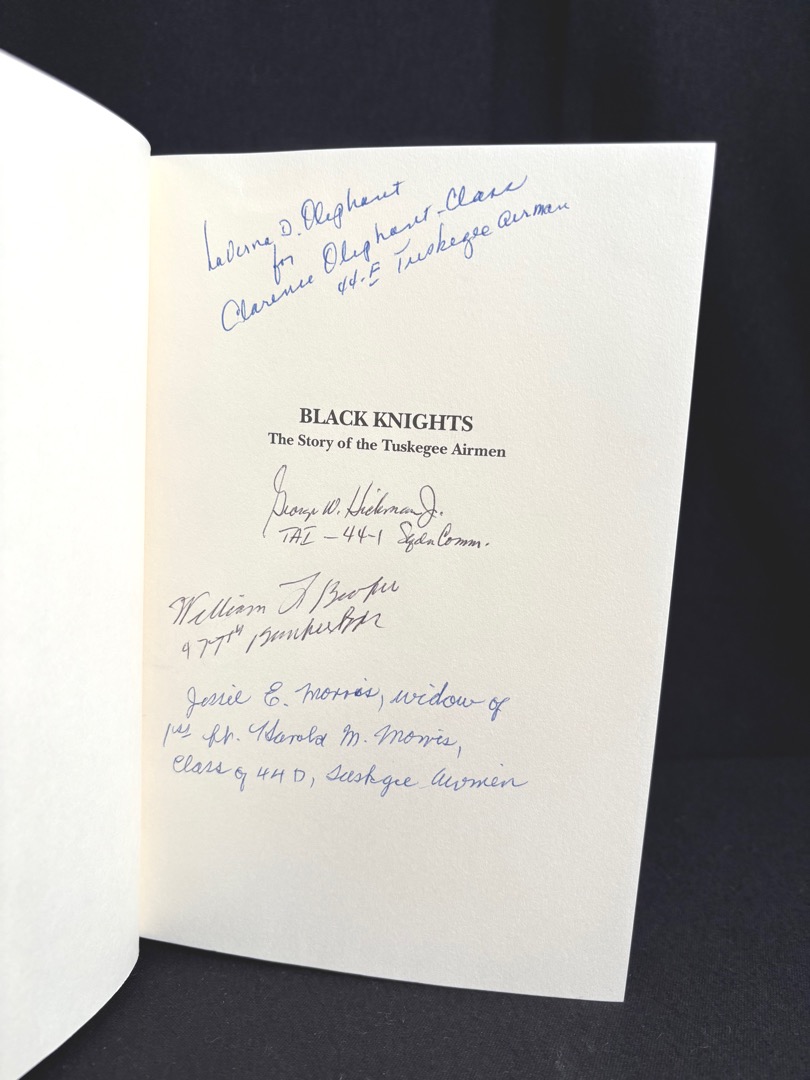 LaVerne D. Oliphant
for
Clarence Oliphant-Class
44-F Tuskegee Airman
BLACK KNIGHTS
The Story of the Tuskegee Airmen
George W. Hickman Jr.
TAI - 44-1 Sqdn Comm.
William F Booker
477TH
Jessie E. Morris, widow of
1st Lt. Harold M. Morris,
Class of 44 D, Tuskegee Airmen